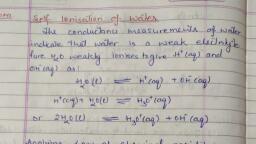 Self Ionisation of Water
The conductance measurements of water
indicate that water is a weak electrolyte
Pure H₂O weakly ionises to give H⁺(aq) and
OH⁻(aq) as:
H₂O(l) ⇌ H⁺(aq) + OH⁻(aq)
H⁺(aq) + H₂O(l) ⇌ H₃O⁺(aq)
or 2H₂O(l) ⇌ H₃O⁺(aq) + OH⁻(aq)
Applying Law of chemical